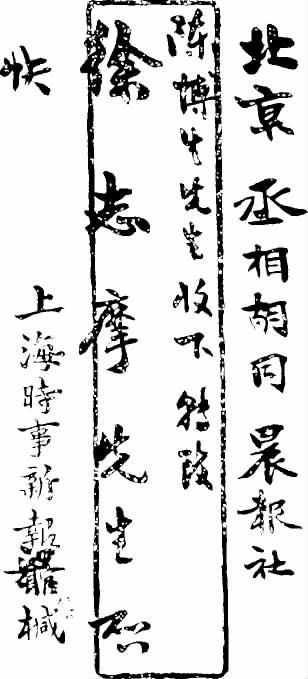 北京丞相胡同晨報社
陈博生先生收下转致
徐志摩先生启
快
上海時事新報館槭